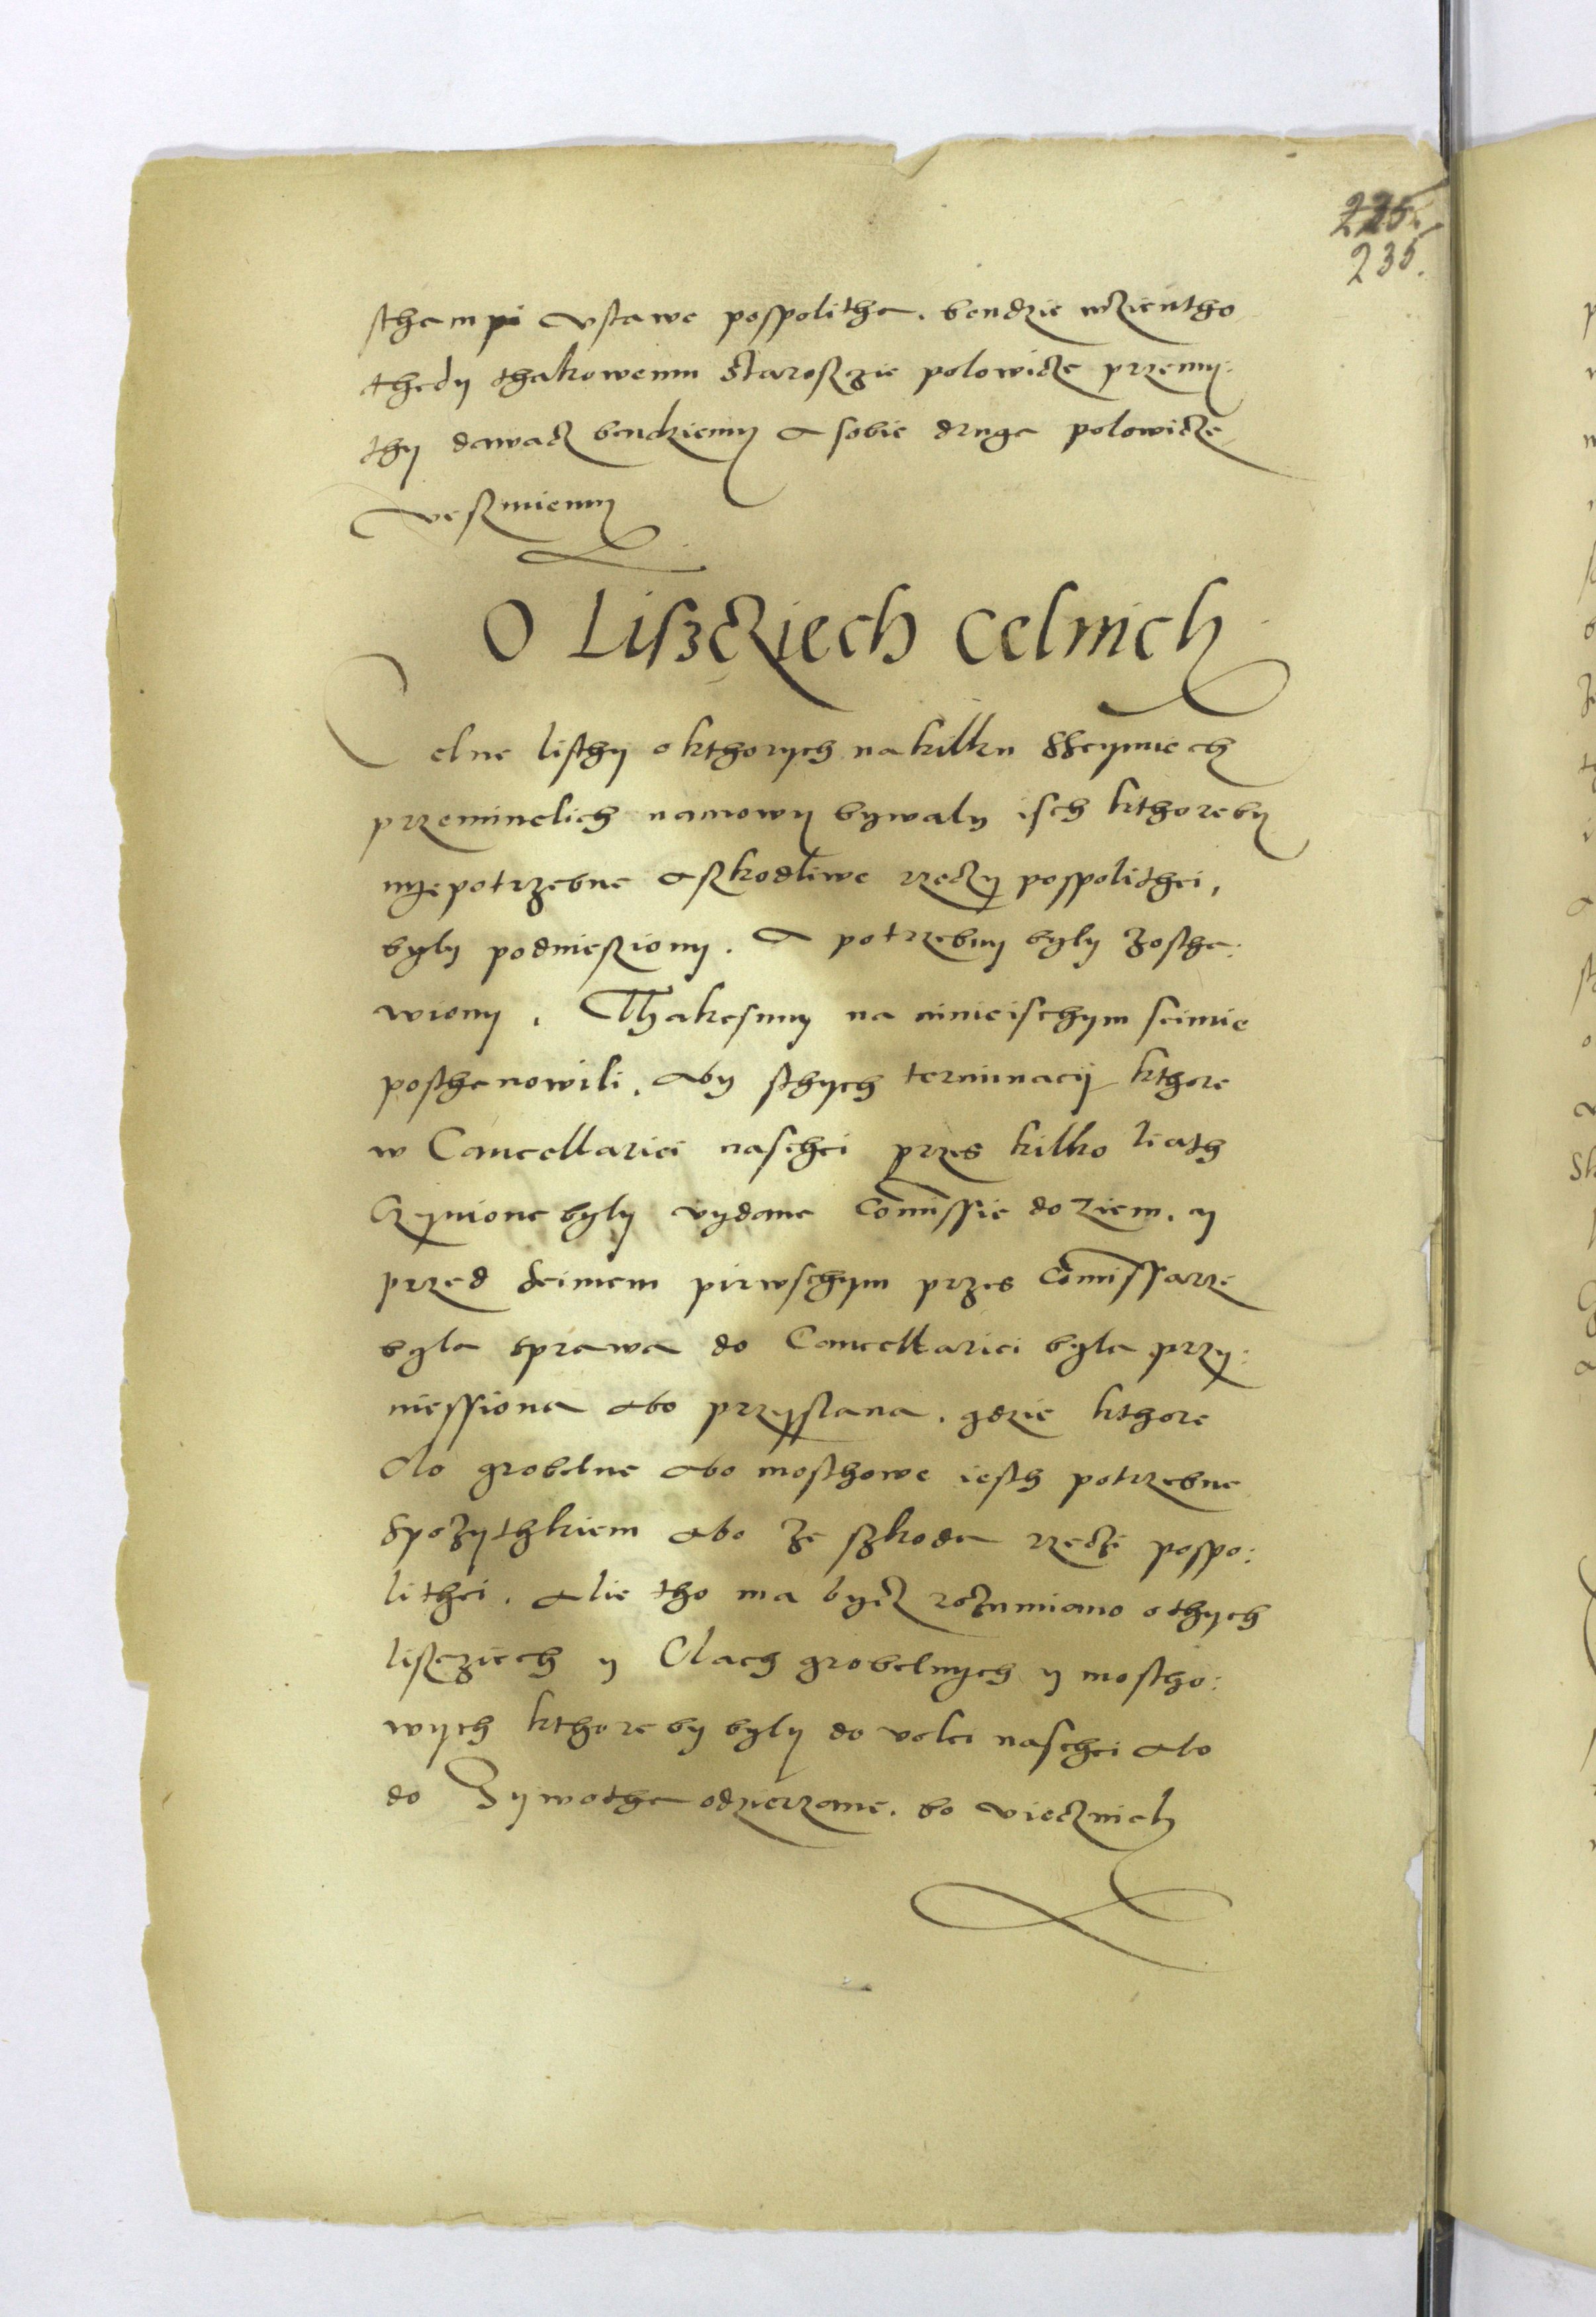 225
235.
sthampi ustawe pospolitha. bendzie wzientho
thedy thakowemu Staroszie polowicze przemy:
thy dawacz bendziemy a sobie druga polowicze
veszmiemy
O Liszcziech Celnich
Celne listhy o kthorych na kilku Sseymiech
przeminelich namowy bywaly isch kthoreby
nyepotrzebne a szkodliwe rzeczy pospolithei,
byly podniesziony. A potrzebny byly zostha:
wiony. Thakesmy na ninieischym seimie
posthanowili. Aby sthych terminacij kthore
w Cancellariei naschei przes kilko liath
czynione byly vydane Comissie do ziem. y
przed Seimem pirwschym przes Comissarze
byla sprawa do Cancellariei byla przy:
niessiona abo przyslana. gdzie kthore
Clo grobelne abo mosthowe iesth potrzebne
Spozythkiem abo ze szkoda rzeczi pospo:
lithei. Alie tho ma bycz rozumiano o thych
liscziech y Clach grobelnych y mostho:
wych kthore by byly do volei naschei abo
do Zywotha odzierzane. bo viecznich